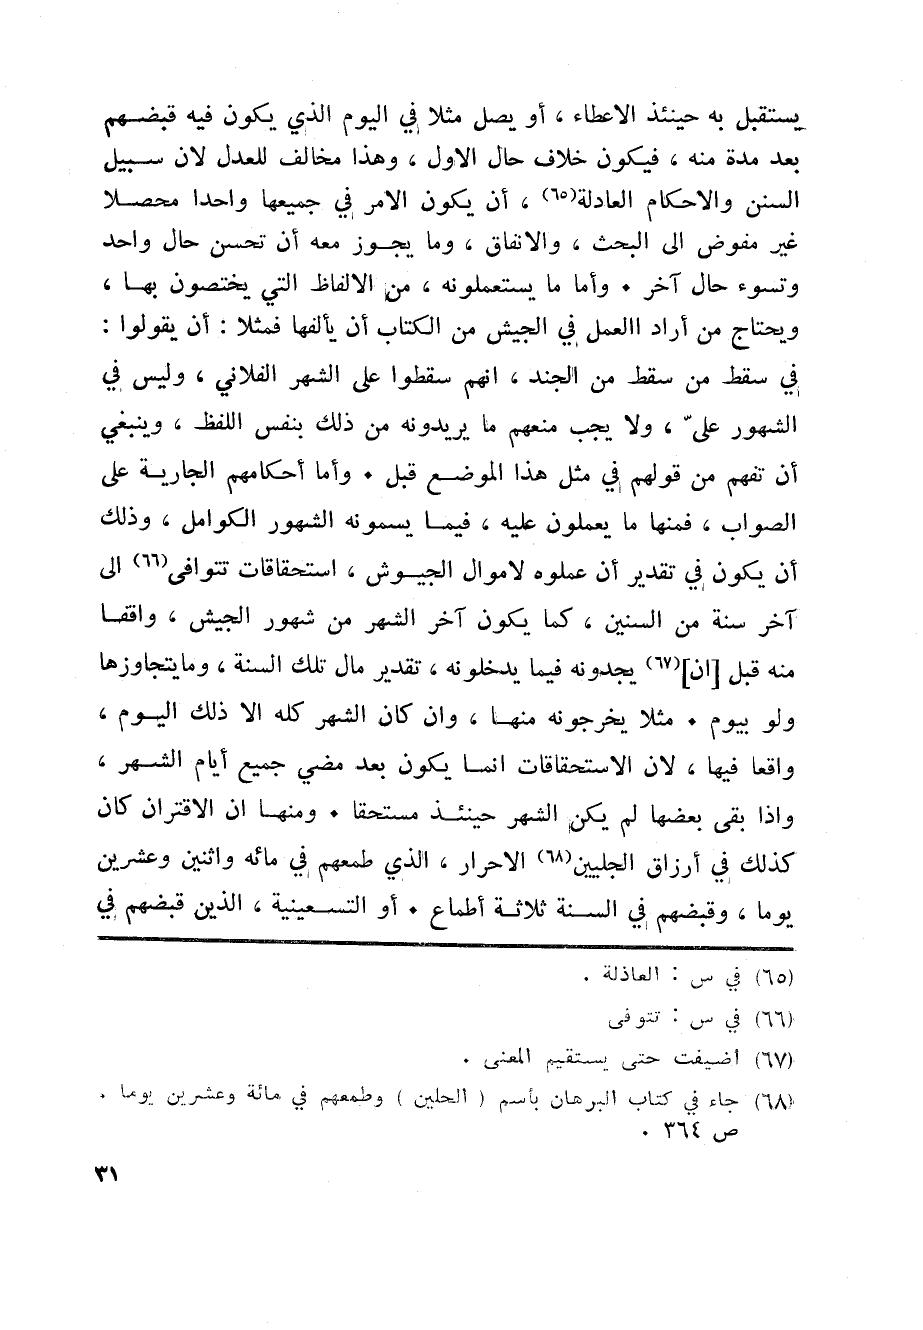 يستقبل به حينئذ الاعطاء ، أو يصل مثلا في اليوم الذي يكون فيه قبضـــهم
بعد مدة منه ، فيكون خلاف حال الاول ، وهذا مخالف للعدل لان ســـبيل
السنن والاحكام العادلة(٦٥) ، أن يكون الامر في جميعها واحدا محصــلا
غير مفوض الى البحث ، والانفاق ، وما يجــوز معه أن تحسن حال واحد
وتسوء حال آخر • وأما ما يستعملونه ، من الالفاظ التي يختصون بهــا ،
ويحتاج من أراد االعمل في الجيش من الكتاب أن يألفها فمثلا : أن يقولوا :
في سقط من سقط من الجند ، انهم سقطوا على الشهر الفلاني ، وليس في
الشهور علىّ ، ولا يجب منعهم ما يريدونه من ذلك بنفس اللفظ ، وينبغي
أن تفهم من قولهم في مثل هذا الموضــع قبل • وأما أحكامهم الجاريــة على
الصواب ، فمنها ما يعملون عليه ، فيمــا يسمونه الشهور الكوامل ، وذلك
أن يكون في تقدير أن عملوه لاموال الجيــوش ، استحقاقات تتوافى(٦٦) الى
آخر سنة من السنين ، كما يكون آخر الشهر من شهور الجيش ، واقفــا
منه قبل [ان](٦٧) يجدونه فيما يدخلونه ، تقدير مال تلك السنة ، ومايتجاوزها
ولو بيوم • مثلا يخرجونه منهــا ، وان كان الشهر كله الا ذلك اليــوم ،
واقعا فيها ، لان الاستحقاقات انمــا يكون بعد مضي جميع أيام الشـــهر ،
واذا بقى بعضها لم يكن الشهر حينئــذ مستحقا • ومنهــا ان الاقتران كان
كذلك في أرزاق الجليين(٦٨) الاحرار ، الذي طمعهم في مائه واثنين وعشرين
يوما ، وقبضهم في الســنة ثلاثــة أطماع • أو التســعينية ، الذين قبضهم في
(٦٥) في س : العاذلة .
(٦٦) في س : تتوفى
(٦٧) اضيفت حتى يستقيم المعنى .
(٦٨) جاء في كتاب البرهان بأسم ( الحلين ) وطمعهم في مائة وعشرين يوما .
ص ٣٦٤ .
٣١